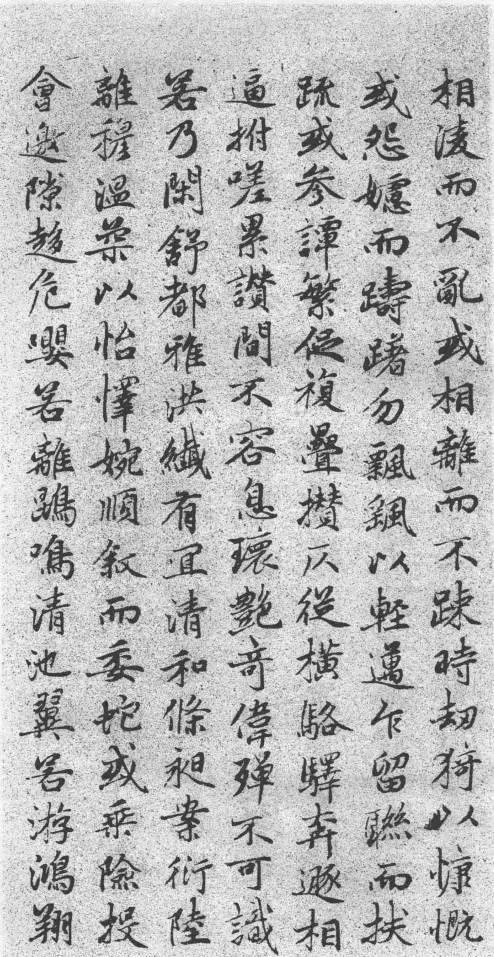 相淩而不亂或相離而不踈時劫猗以慷慨
或怨嫭而躊躇勿飄颻以輕邁乍留聯而扶
疏或參譚繁促複疊攢仄從橫駱驛奔遯相
逼拊嗟累讚間不容息瓌艷奇偉殫不可識
若乃閑舒都雅洪纖有宜清和條昶案衍陸
離穆溫柔以怡懌婉順敘而委蛇或乘險投
會邀隙趍危嚶若離鵾鳴清池翼若游鴻翔